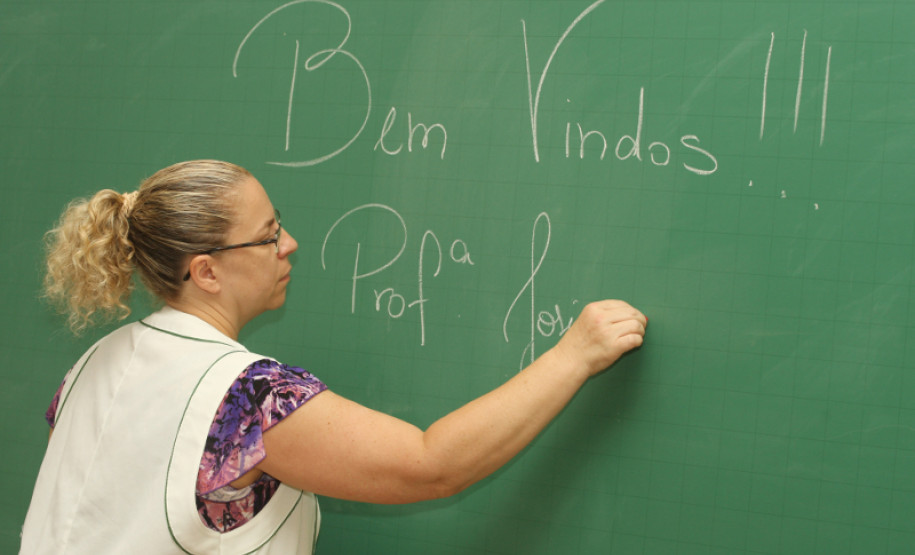 Bem Vindos!!!
Profª Josi